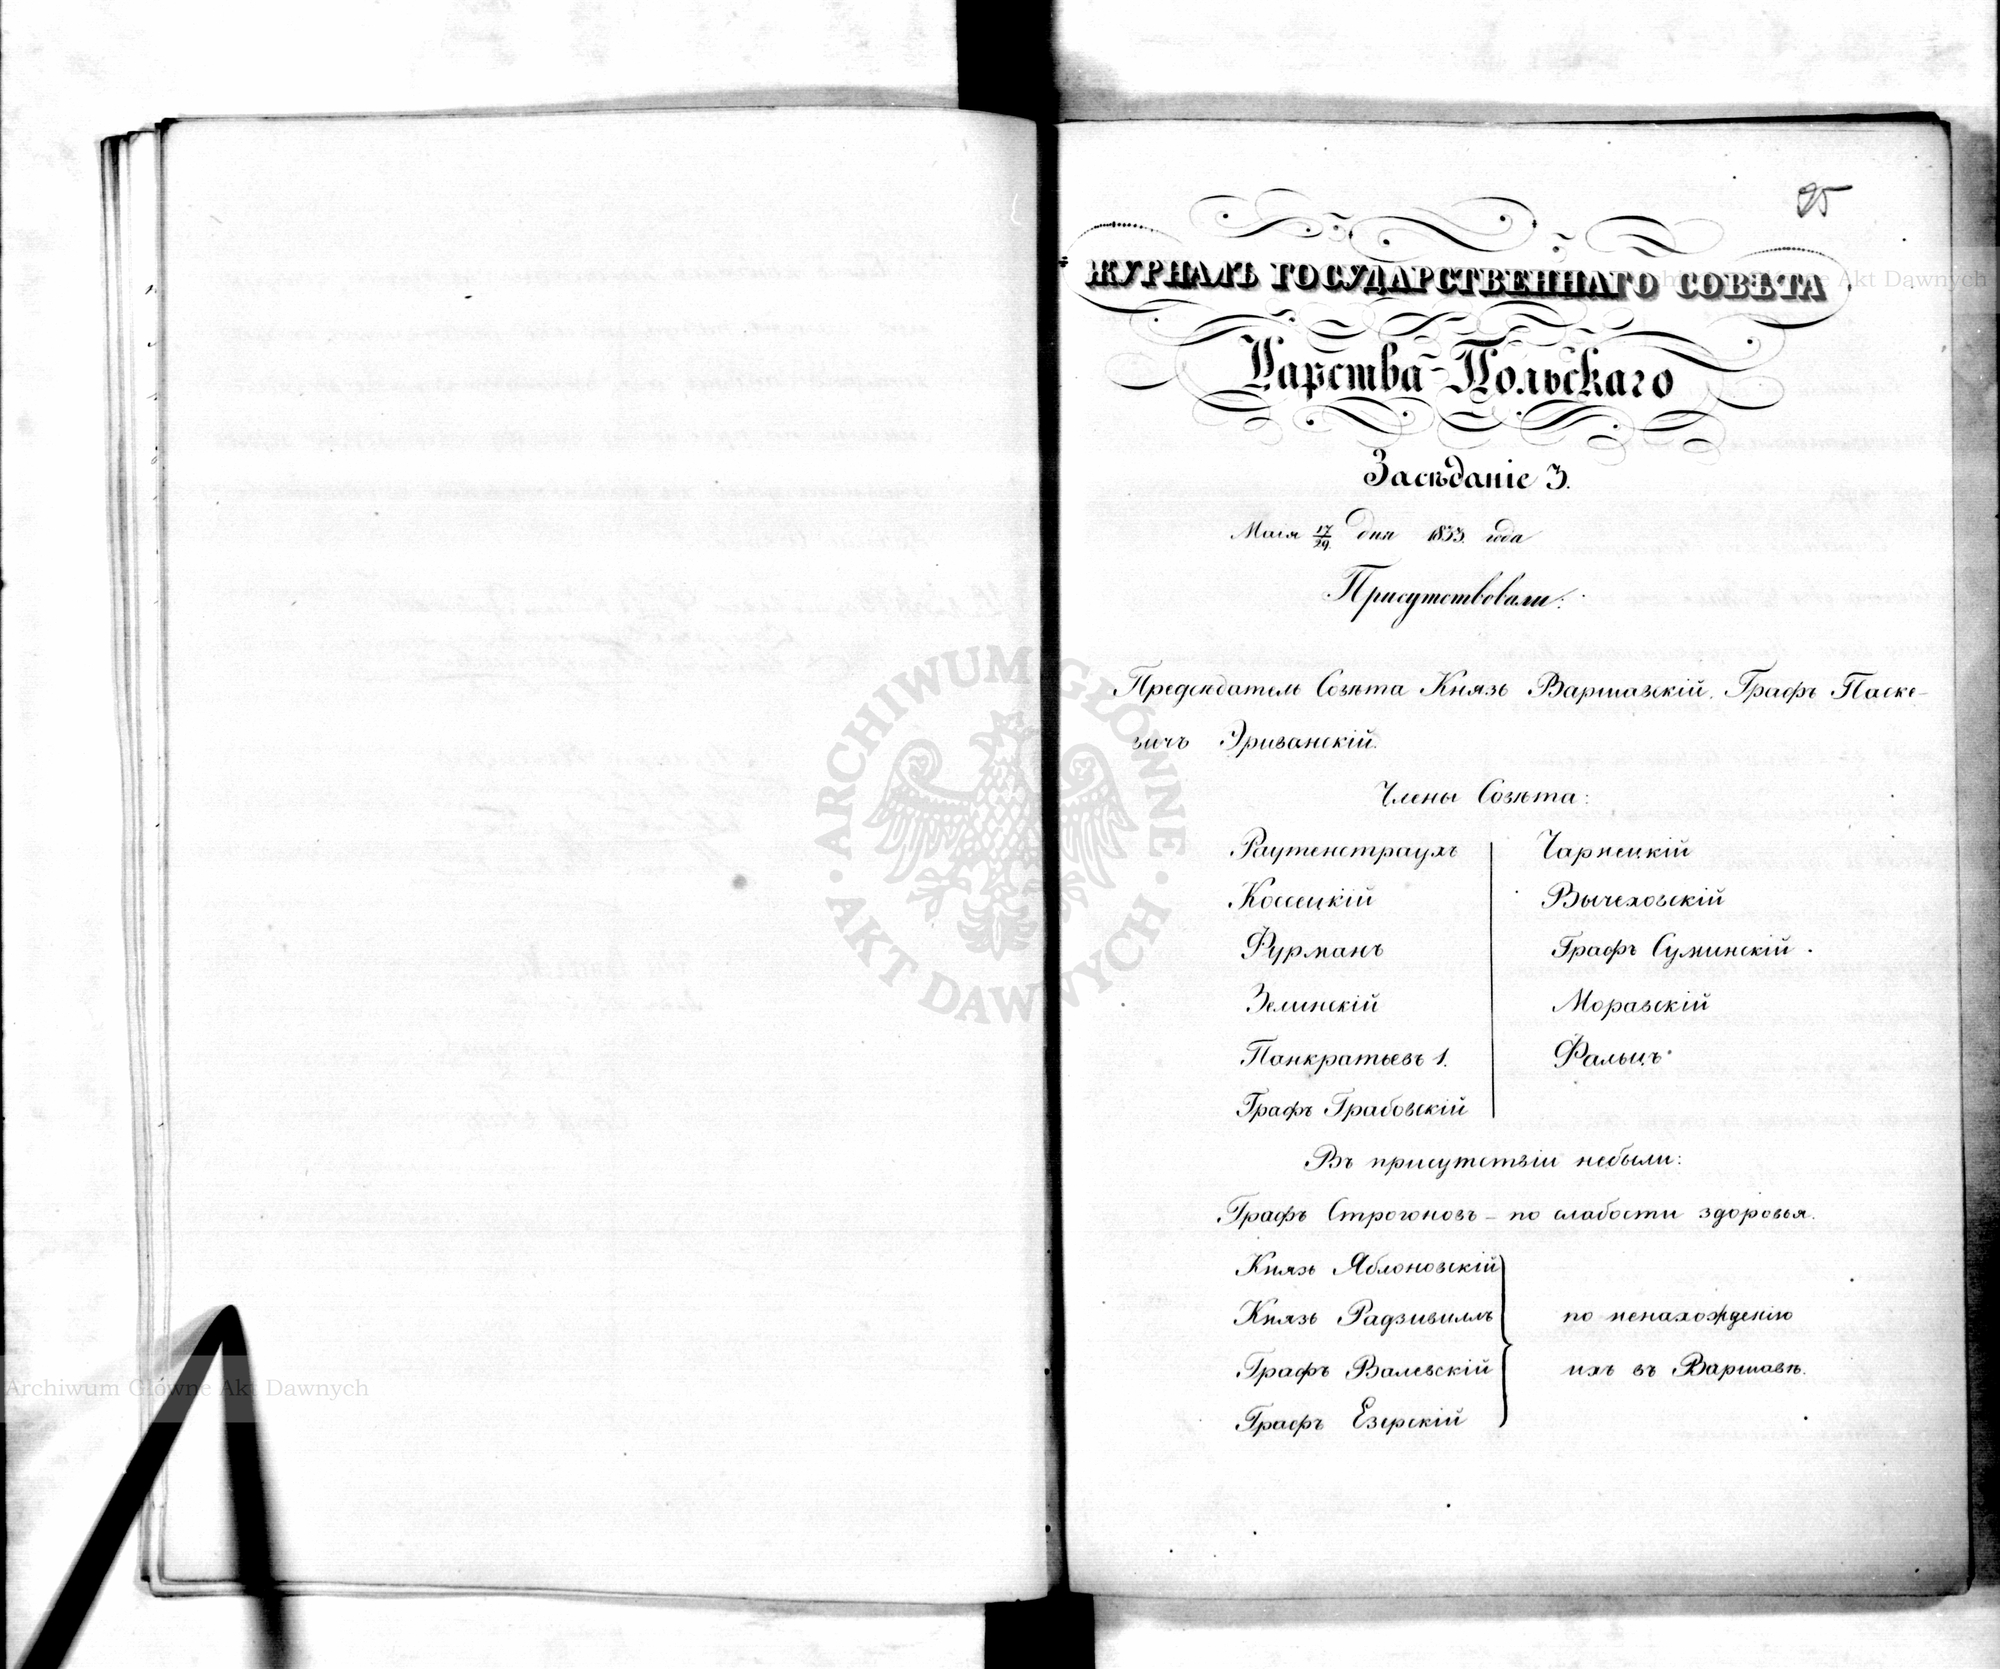 95
ЖУРНАЛЪ ГОСУДАРСТВЕННАГО СОВѢТА
Царства Польскаго
Засѣданіе 3.
Маія 17/29. дня 1833. года
Присутствовали:
Предсѣдатель Совѣта Князь Варшавскій, Графъ Паске-
вичъ Эриванскій.
Члены Совѣта:
Раутенстраухъ
Коссецкій
Фурманъ
Зелинскій
Панкратьевъ 1.
Графъ Грабовскій
Чарнецкій
Вычеховскій
Графъ Суминскій.
Моравскій
Фальцъ
Въ присутствіи небыли:
Графъ Строгоновъ - по слабости здоровья.
Князь Яблоновскій
Князь Радзивиллъ
Графъ Валевскій
Графъ Езерскій
по ненахожденію
ихъ въ Варшавѣ.
ARCHIWUM GŁÓWNE
AKT DAWNYCH
Archiwum Główne Akt Dawnych